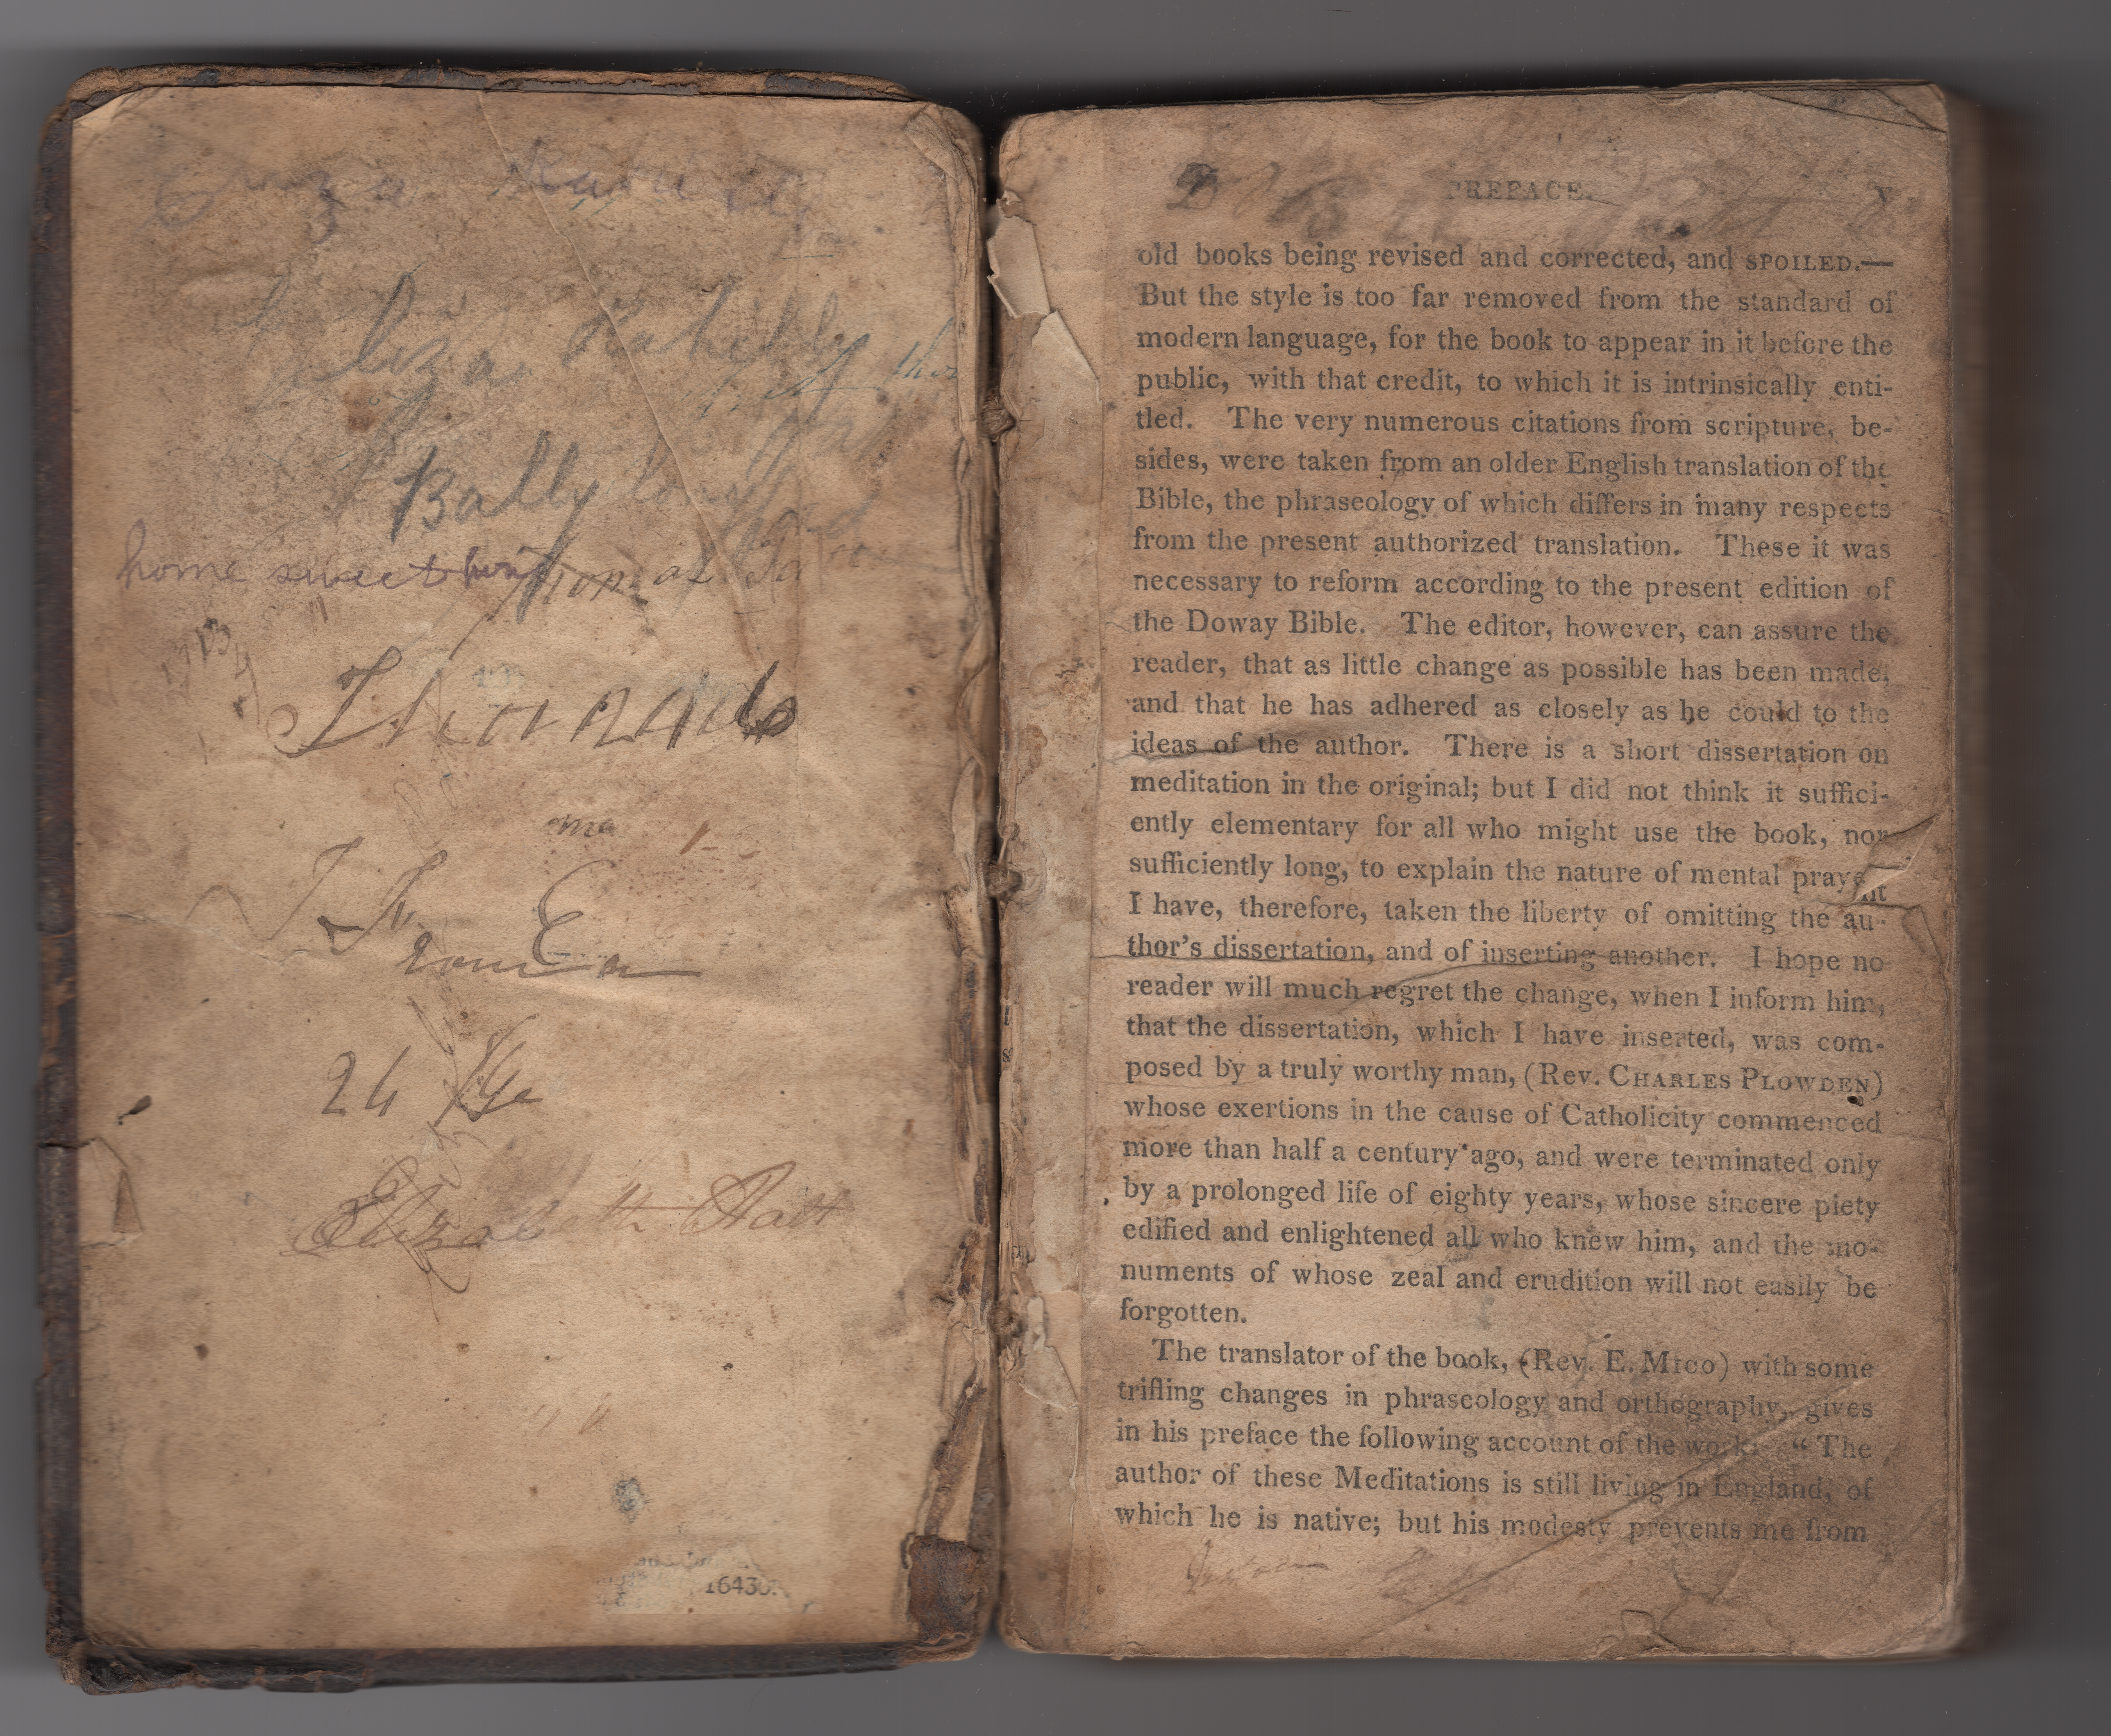 Eliza
Bally
home sweet home
ma
26
Elizabeth
1643
PREFACE. v
old books being revised and corrected, and SPOILED.—
But the style is too far removed from the standard of
modern language, for the book to appear in it before the
public, with that credit, to which it is intrinsically enti-
tled. The very numerous citations from scripture, be-
sides, were taken from an older English translation of the
Bible, the phraseology of which differs in many respects
from the present authorized translation. These it was
necessary to reform according to the present edition of
the Doway Bible. The editor, however, can assure the
reader, that as little change as possible has been made,
and that he has adhered as closely as he could to the
ideas of the author. There is a short dissertation on
meditation in the original; but I did not think it suffici-
ently elementary for all who might use the book, nor
sufficiently long, to explain the nature of mental
I have, therefore, taken the liberty of omitting the au-
thor's dissertation, and of inserting another. I hope no
reader will much regret the change, when I inform him,
that the dissertation, which I have inserted, was com-
posed by a truly worthy man, (Rev. CHARLES PLOWDEN)
whose exertions in the cause of Catholicity commenced
more than half a century ago, and were terminated only
by a prolonged life of eighty years, whose sincere piety
edified and enlightened all who knew him, and the mo-
numents of whose zeal and erudition will not easily be
forgotten.
The translator of the book, (Rev. E. MICO) with some
trifling changes in phraseology and orthography, gives
in his preface the following account of the work: "The
author of these Meditations is still living in England, of
which he is native; but his modesty prevents me from